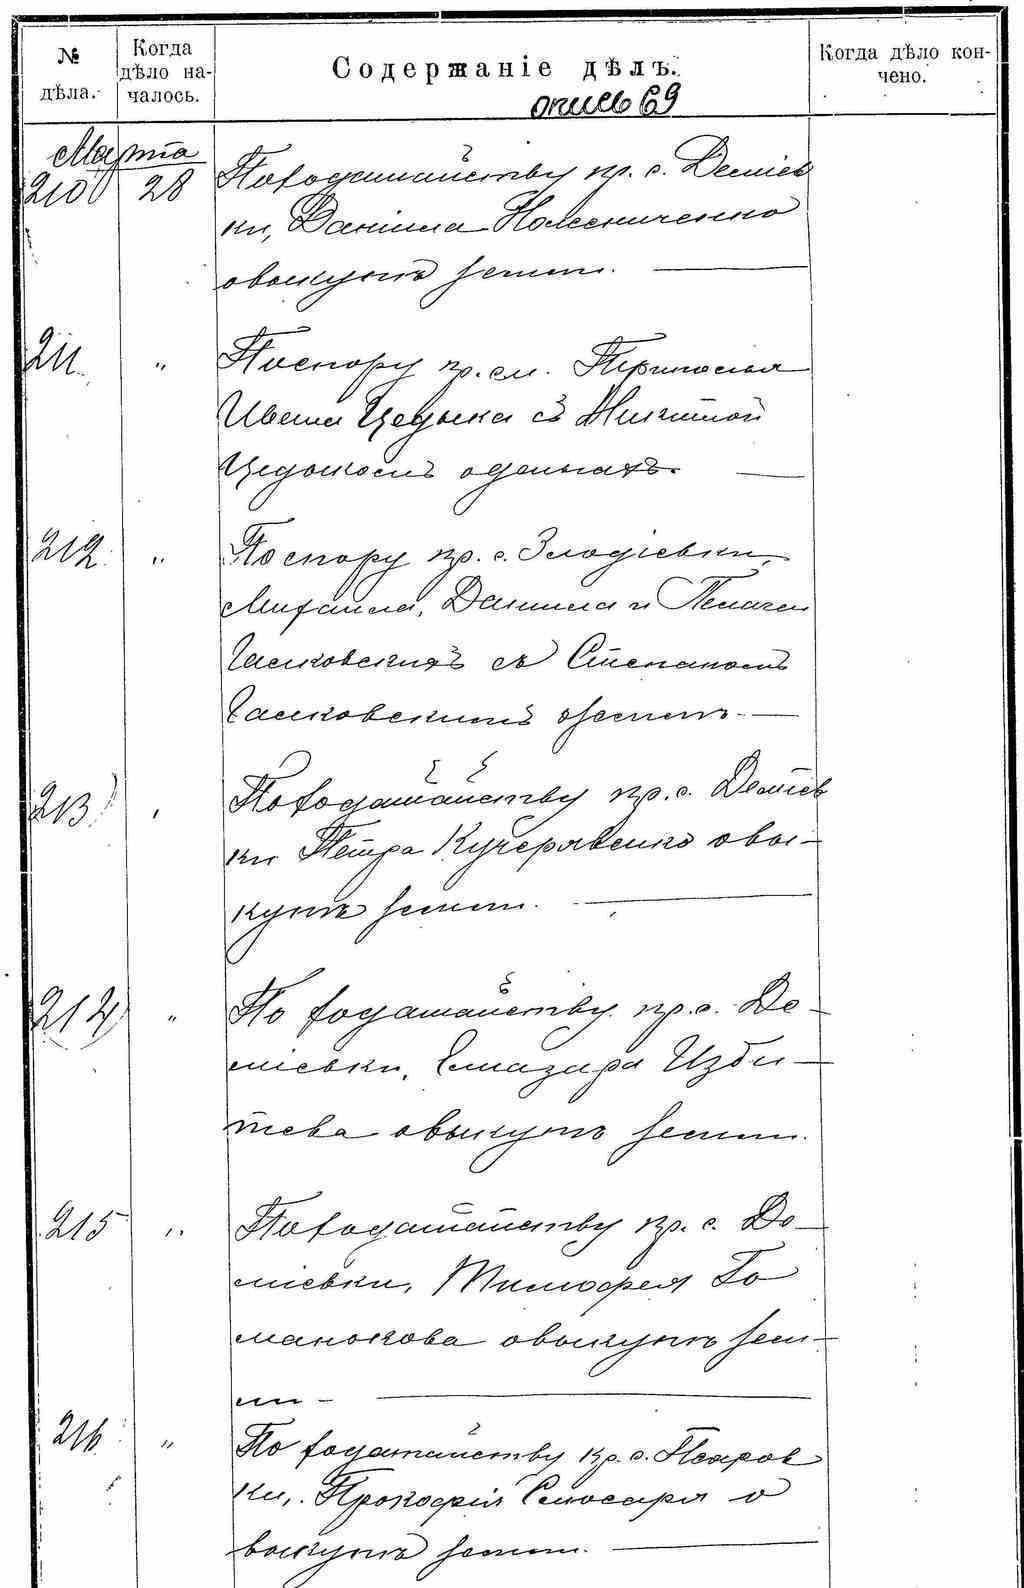 № дѣла.
Когда дѣло началось.
Содержаніе дѣлъ.
Когда дѣло кончено.
опись 69
Марта
210 28 По ходатайству кр. с. Деміев
ки, Даніила Коломниченко
о выкупѣ земли.
211 " По спору кр. см. Триполья
Ивана Цедыка съ Никитой
Цедыкомъ о деньгахъ.
212 " По спору кр. с. Злодіевки,
Михаила, Данила и Пелагеи
Галковскихъ съ Степаномъ
Галковскимъ о землѣ.
213 " По ходатайству кр. с. Деміев
ки Петра Кучерявенко о вы-
купѣ земли.
214 " По ходатайству кр. с. Де-
міевки, Елиазара Изби-
тева о выкупѣ земли.
215 " По ходатайству кр. с. Де-
міевки, Тимофея
о выкупѣ зем-
ли -
216 " По ходатайству кр. с.
ки, Прокофія Слюсаря о
выкупѣ земли.